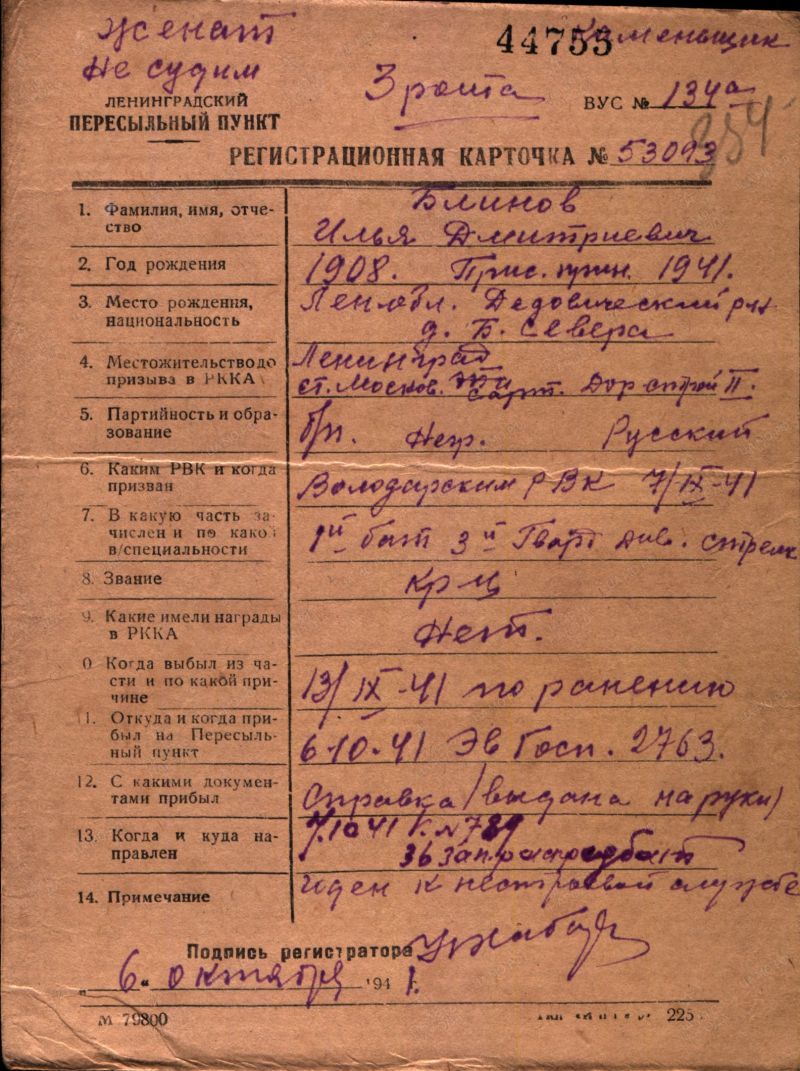 Женат
44755 Каменьщик
Не судим
3 рота
ВУС № 134а
ЛЕНИНГРАДСКИЙ
ПЕРЕСЫЛЬНЫЙ ПУНКТ
РЕГИСТРАЦИОННАЯ КАРТОЧКА № 53093
1. Фамилия, имя, отче-
ство
Блинов
Илья Дмитриевич
2. Год рождения
1908. Прис. прин. 1941.
3. Место рождения,
национальность
Ленобл. Дедовический р-н
д. Б. Севера
4. Местожительстводо
призыва в РККА
Ленинград
ст. Москов. сорт. Дорстрой II.
5. Партийность и обра-
зование
б/п. Негр. Русский
6. Каким РВК и когда
призван
Володарским РВК 7/IX-41
7. В какую часть за-
числен и по какой
в/специальности
1й бат 3й Гвард див. стрелк
8. Звание
Кр-ц
9. Какие имели награды
в РККА
Нет.
0 Когда выбыл из ча-
сти и по какой при-
чине
13/IX-41 по ранению
1. Откуда и когда при-
был на Пересыль-
ный пункт
6-10-41 Эв Госп. 2763.
12. С какими докумен-
тами прибыл
Справка (выдана на руки)
13. Когда и куда на-
правлен
7.10 41 К. №789
36 зап
14. Примечание
Годен к нестроевой службе
Подпись регистратора
„ 6 “ октября 1941 г.
М 79800
225